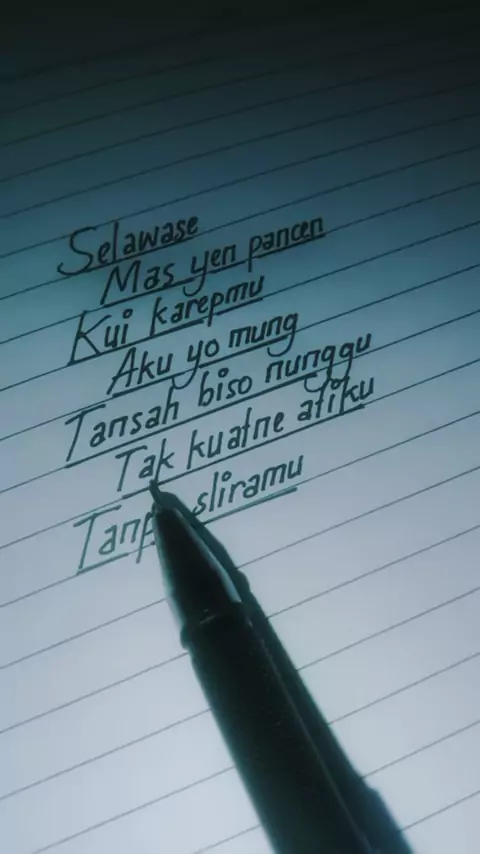 Selawase
Mas yen pancen
Kui karepmu
Aku yo mung
Tansah biso nunggu
Tak kuatne atiku
sliramu